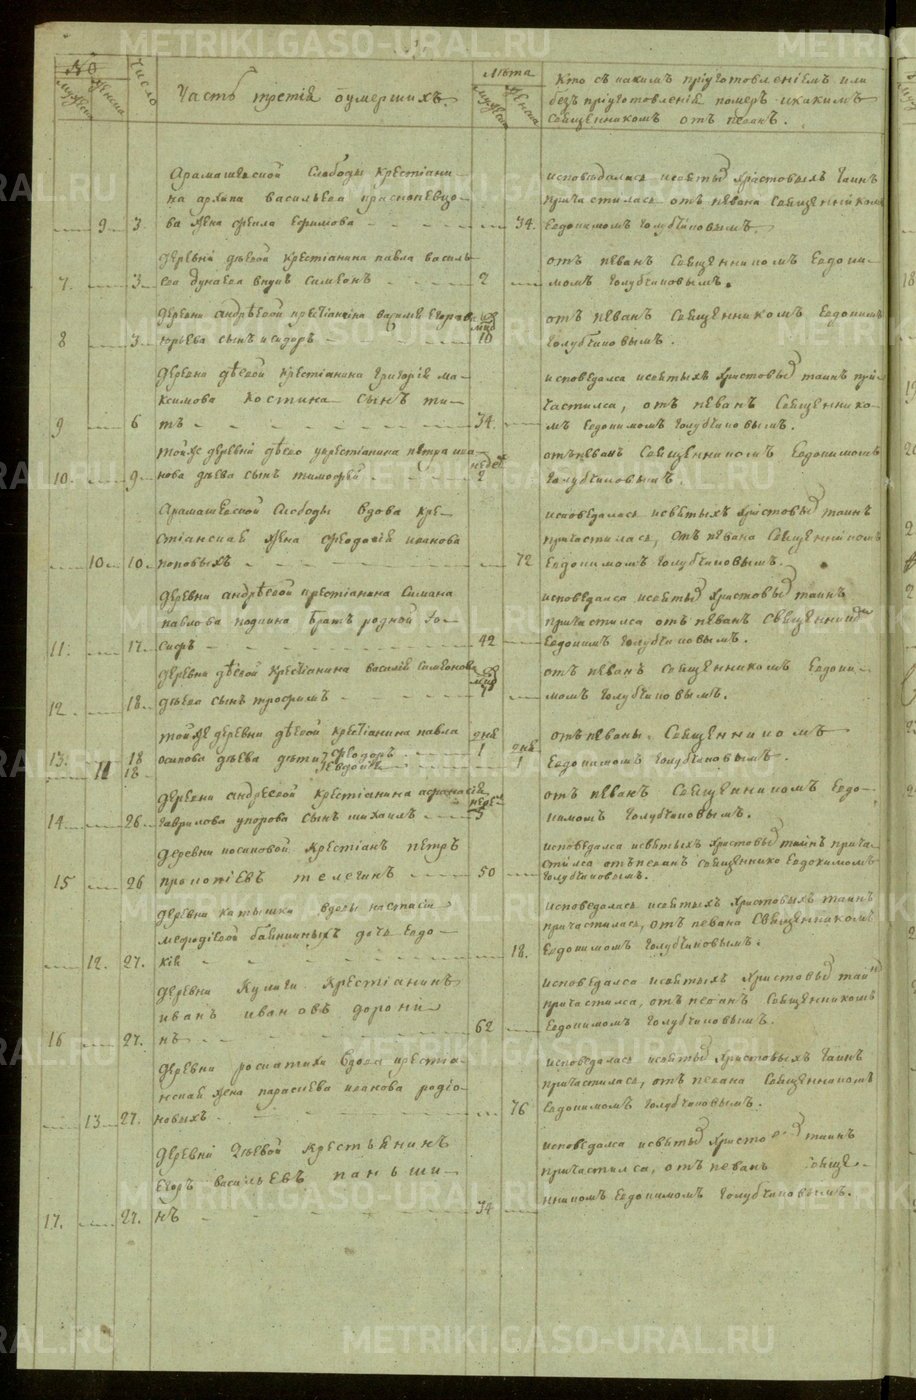 №
мужеск женска
Число
Часть третія оумершихъ.
лѣта
мужеск женска
Кто съ какимъ пріуготовленіемъ или
безъ пріуготовленія померъ и какимъ
священникомъ отъ певанъ.
Арамашевской Слободы крестіани-
на архипа васильева краснопевцо-
9 3 ва жена фекла Ефимова 34.
исповѣдалась и святыхъ христовыхъ таинъ
причастилась отъ певана священникомъ
Евдокимомъ Голубчиковымъ.
деревни дѣевой крестіанина павла василь-
7. 3. ева дунаева внукъ симеонъ 2
отъ певанъ священникомъ Евдоки-
момъ Голубчиковымъ.
деревни андрѣевой крестіанина
8 3. юрьева сынъ исидоръ 10
отъ певанъ священникомъ Евдокимомъ
Голубчиковымъ.
деревни дѣевой крестіанина григорія ма-
ксимова костина сынъ ти-
9 6 тъ 34.
исповедался и святыхъ христовыхъ таинъ при-
частился, отъ певанъ священнико-
мъ Евдокимомъ Голубчиковымъ.
тойже деревни дѣево крестіанина петра ива- недел
10. 9. нова дѣева сынъ тимофей 2
отъ певанъ священникомъ Евдокимомъ
Голубчиковымъ.
Арамашевской Слободы вдова кре-
стіанская жена феодосія иванова
10. 10. поповыхъ 72
исповедалась и святыхъ христовыхъ таинъ
причастилась, отъ певана священникомъ
Евдокимомъ Голубчиковымъ.
деревни андрѣевой крестіанина
павлова подкина братъ родной Io-
11. 17. сифъ 42
исповедался и святыхъ христовыхъ таинъ
причастился отъ певанъ священникомъ
Евдокимъ Голубчиковымъ.
деревни дѣевой крестіанина василія симеонова
12 18. дѣева сынъ трофимъ
отъ певанъ священникомъ Евдоки-
момъ Голубчиковымъ.
тойже деревни дѣевой крестіанина павла дне
13. 18 осипова дѣева дѣти феодоръ 1 дне
11 18 евдокія 1
отъ певаны священникомъ
Евдокимомъ Голубчиковымъ.
деревни андреевой крестіанина афонасія недел
14 26. гаврилова упорова сынъ михаилъ 5
отъ певанъ священникомъ Евдо-
кимомъ Голубчиковымъ.
деревни косиковой крестіанъ петръ
15 26 прокопіевъ телегинъ 50
исповедался и святыхъ христовыхъ таинъ прича-
стился отъ певанъ священнико Евдокимомъ
Голубчиковымъ.
деревни катышки вдовы настасіи
мефодіевой баннинныхъ дочь Евдо-
12. 27. кія 18.
исповедалась и святыхъ христовыхъ таинъ
причастилась, отъ певана священникомъ
Евдокимомъ Голубчиковымъ.
деревни Кулиги крестіанинъ
иванъ ивановъ дорони
16 27. нъ 62
исповедался и святыхъ христовыхъ таинъ
причастился, отъ певанъ священникомъ
Евдокимомъ Голубчиковымъ.
деревни роскатихи вдова крестіа-
нская жена параскева иванова родіо-
13 27. новыхъ 76
исповедалась и святыхъ христовыхъ таинъ
причастилась, отъ певана священникомъ
Евдокимомъ Голубчиковымъ.
деревни дѣевой крестьянинъ
Егоръ васильевъ паньши-
17. 27. нъ 34
исповедался и святыхъ христовыхъ таинъ
причастился, отъ певанъ священ-
никомъ Евдокимомъ Голубчиковымъ.
METRIKI.GASO-URAL.RU